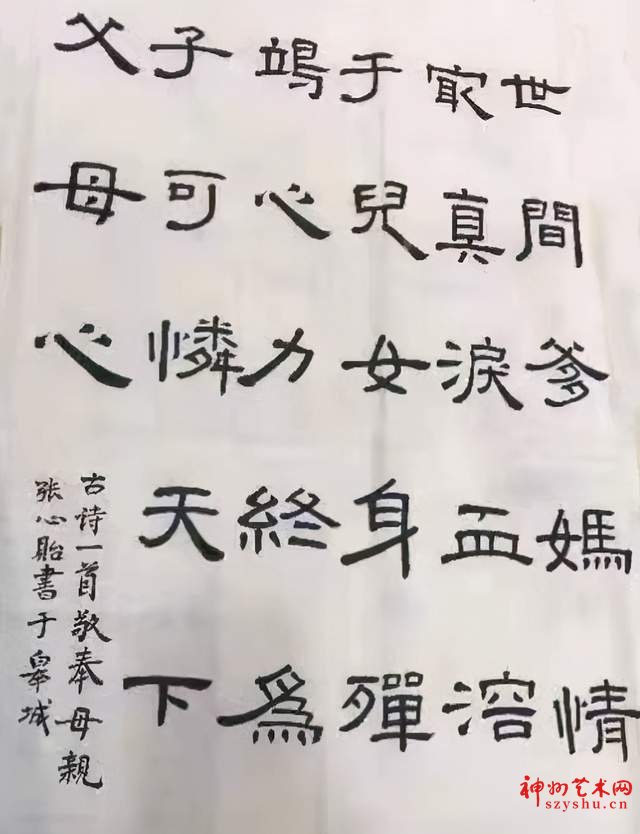 世間爹媽情
冣真淚血溶
于兒女身殫
竭心力終為
子可憐天下
父母心
古诗一首敬奉母親
张心貽書于皋城
神州艺术网
szyshu.cn